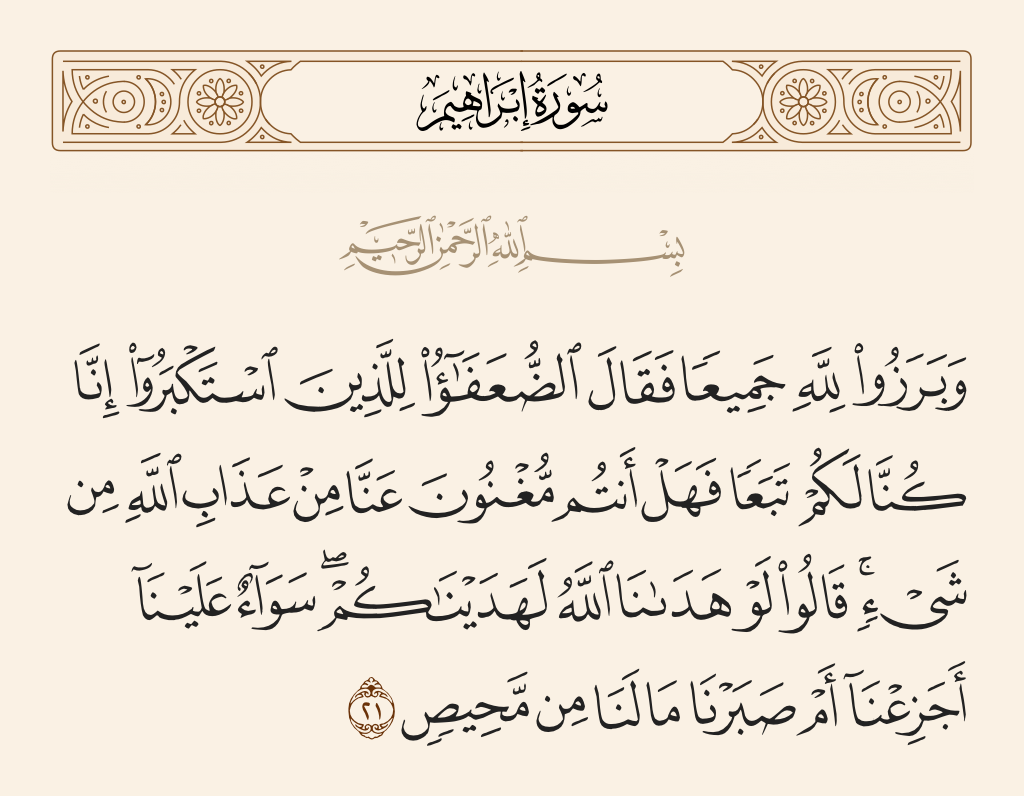 سُورَةُ إِبْرَاهِيمَ
بِسْمِ ٱللَّهِ ٱلرَّحْمَٰنِ ٱلرَّحِيمِ
وَبَرَزُوا۟ لِلَّهِ جَمِيعًا فَقَالَ ٱلضُّعَفَـٰٓؤُا۟ لِلَّذِينَ ٱسْتَكْبَرُوٓا۟ إِنَّا
كُنَّا لَكُمْ تَبَعًا فَهَلْ أَنتُم مُّغْنُونَ عَنَّا مِنْ عَذَابِ ٱللَّهِ مِن
شَىْءٍ ۚ قَالُوا۟ لَوْ هَدَىٰنَا ٱللَّهُ لَهَدَيْنَـٰكُمْ ۖ سَوَآءٌ عَلَيْنَآ
أَجَزِعْنَآ أَمْ صَبَرْنَا مَا لَنَا مِن مَّحِيصٍ ٢١